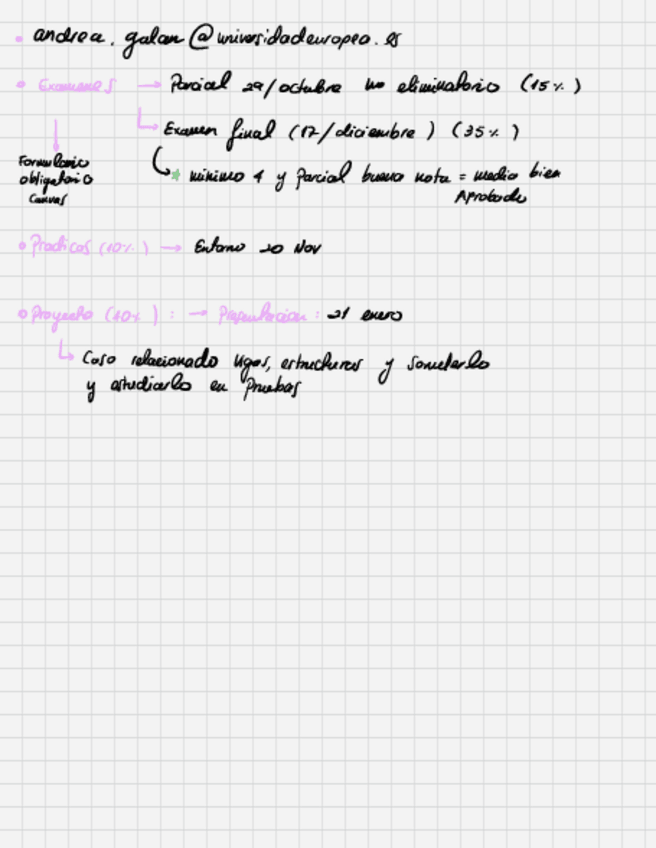 • andrea.galan@universidadeuropea.es
• Examenes → Parcial 29/octubre no eliminatorio (15%)
↳ Examen final (17/diciembre) (35%)
Formulario
obligatorio
Canvas
* minimo 4 y Parcial buena nota = media bien
Aprobado
• Practicas (10%) → Entorno 20 Nov
• Proyecto (40%) : → Presentacion : 21 enero
↳ Caso relacionado vigas, estructuras y someterlo
y estudiarlo en Pruebas